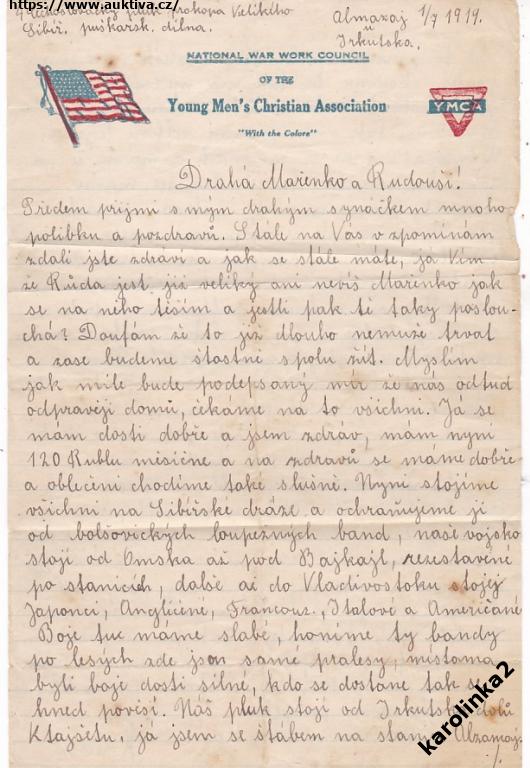 https://www.auktiva.cz/
Českoslovácký pluk prokopa Velikého
Sibiř. puškařsk. dílna.
Almazaj 1/7 1919.
u
Irkutska.
NATIONAL WAR WORK COUNCIL
OF THE
Young Men's Christian Association
"With the Colors"
YMCA
Drahá Mařenko a Rudouši!
Předem přijmi s mým drahým synáčkem mnoho
polibku a pozdravů. Stále na Vás v zpomínám
zdali jste zdraví a jak se stále máte, já Vím
že Růda jest již veliký ani nevíš Mařenko jak
se na něho těším a jestli pak tě taky poslou-
chá? Doufám že to již dlouho nemuže trvat
a zase budeme šťastně spolu žít. Myslím
jak mile bude podepsaný mír že nás odtud
odpravěji domů, čekáme na to všichni. Já se
mám dosti dobře a jsem zdráv, mám nyní
120 Rublu měsíčně a na zdravů se máme dobře
a oblečeni chodíme také slušně. Nyní stojíme
všichni na Sibiřské dráze a ochraňujeme ji
od bolševických loupežných band, naše vojsko
stojí od Omska až pod Bajkajl, rezestavěné
po stanicích, dalše až do Vladivostoku stojěj
Japonci, Angličéné, Francouz., Italové a Američané
Boje tuc máme slabé, honíme ty bandy
po lesých zde jsou samé pralesy, místama
byli boje dosti silné, kdo se dostane tak se
hned pověsí. Náš pluk stojí od Irkutska dolů
K tajšetu, já jsem se štábem na stanici Alzamaj.
karolinka2